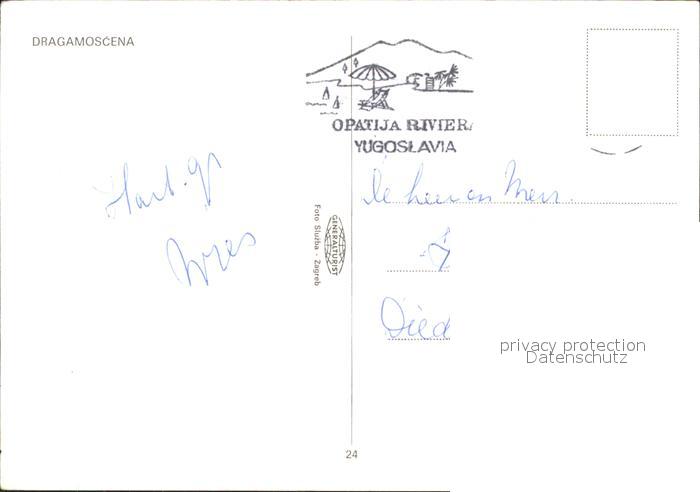 DRAGAMOSĆENA
OPATIJA RIVIERA
YUGOSLAVIA
Hart. gr
De heer en Mevr.
Foto Služba - Zagreb
GENERALTURIST
Died
privacy protection
Datenschutz
24